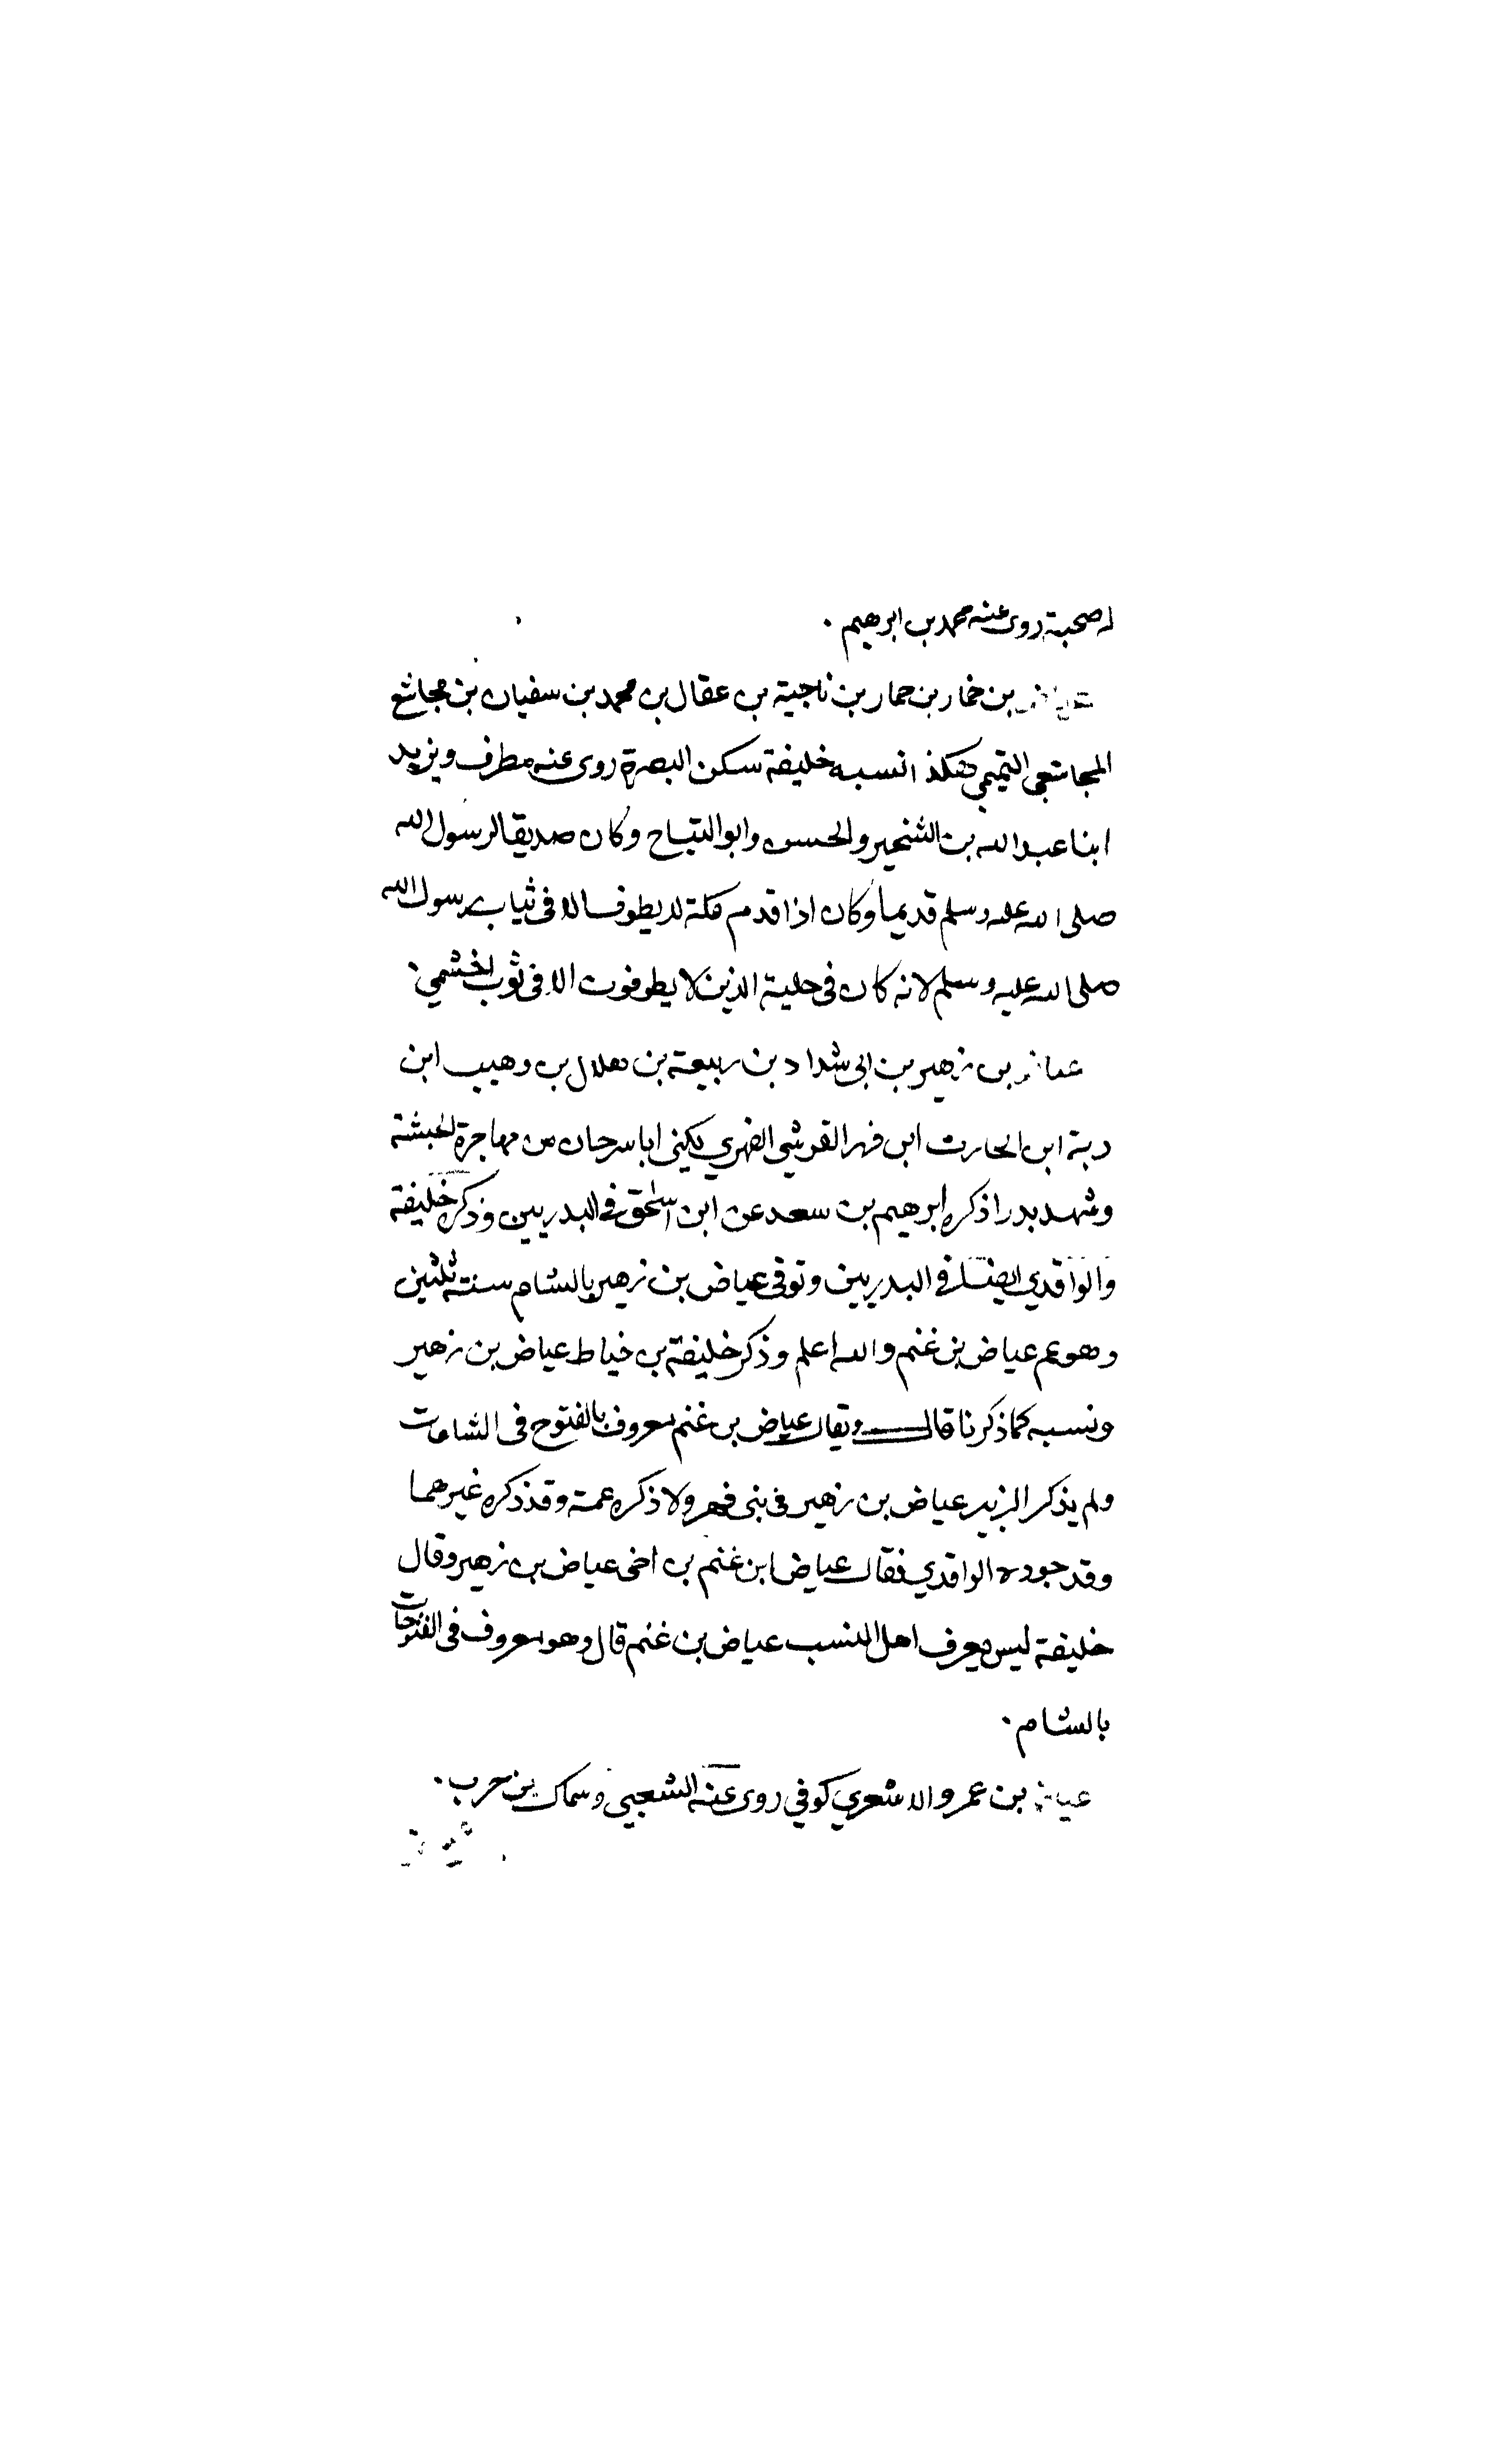 له صحبة روى عنه محمد بن ابرهيم .
عياض بن حمار بن حمار بن ناجية بن عقال بن محمد بن سفيان بن مجاشع
المجاشعي التميمي هكذا نسبه خليفة سكن البصرة روى عنه مطرف ويزيد
ابنا عبد الله بن الشخير والحسن وابو التياح وكان صديقا لرسول الله
صلى الله عليه وسلم قديما وكان اذا قدم مكة لا يطوف الا في ثياب رسول الله
صلى الله عليه وسلم لانه كان في حلية الذين لا يطوفون الا في ثوب
عياض بن زهير بن ابي شداد بن ربيعة بن هلال بن وهيب ابن
ابن الحارث ابن فهر القرشي الفهري يكنى ابا سرحان من مهاجرة الحبشة
وشهد بدرا ذكره ابرهيم بن سعد عن ابن اسحق في البدريين وذكره خليفة
والواقدي ايضا في البدريين وتوفي عياض بن زهير بالشام سنة ثلثين
وهو عم عياض بن غنم والله اعلم وذكر خليفة بن خياط عياض بن زهير
ونسبه كما ذكرنا قال ويقال عياض بن غنم معروف بالفتوح في الشامات
ولم يذكر الزبير عياض بن زهير في بني فهر ولا ذكره عمه وقد ذكره غيرهما
وقد جوده الواقدي فقال عياض ابن غنم بن اخي عياض بن زهير وقال
خليفة ليس يعرف اهل النسب عياض بن غنم قال وهو معروف في الفتوحات
بالشام .
عياض بن عمرو الاشعري كوفي روى عنه الشعبي وسماك بن حرب .